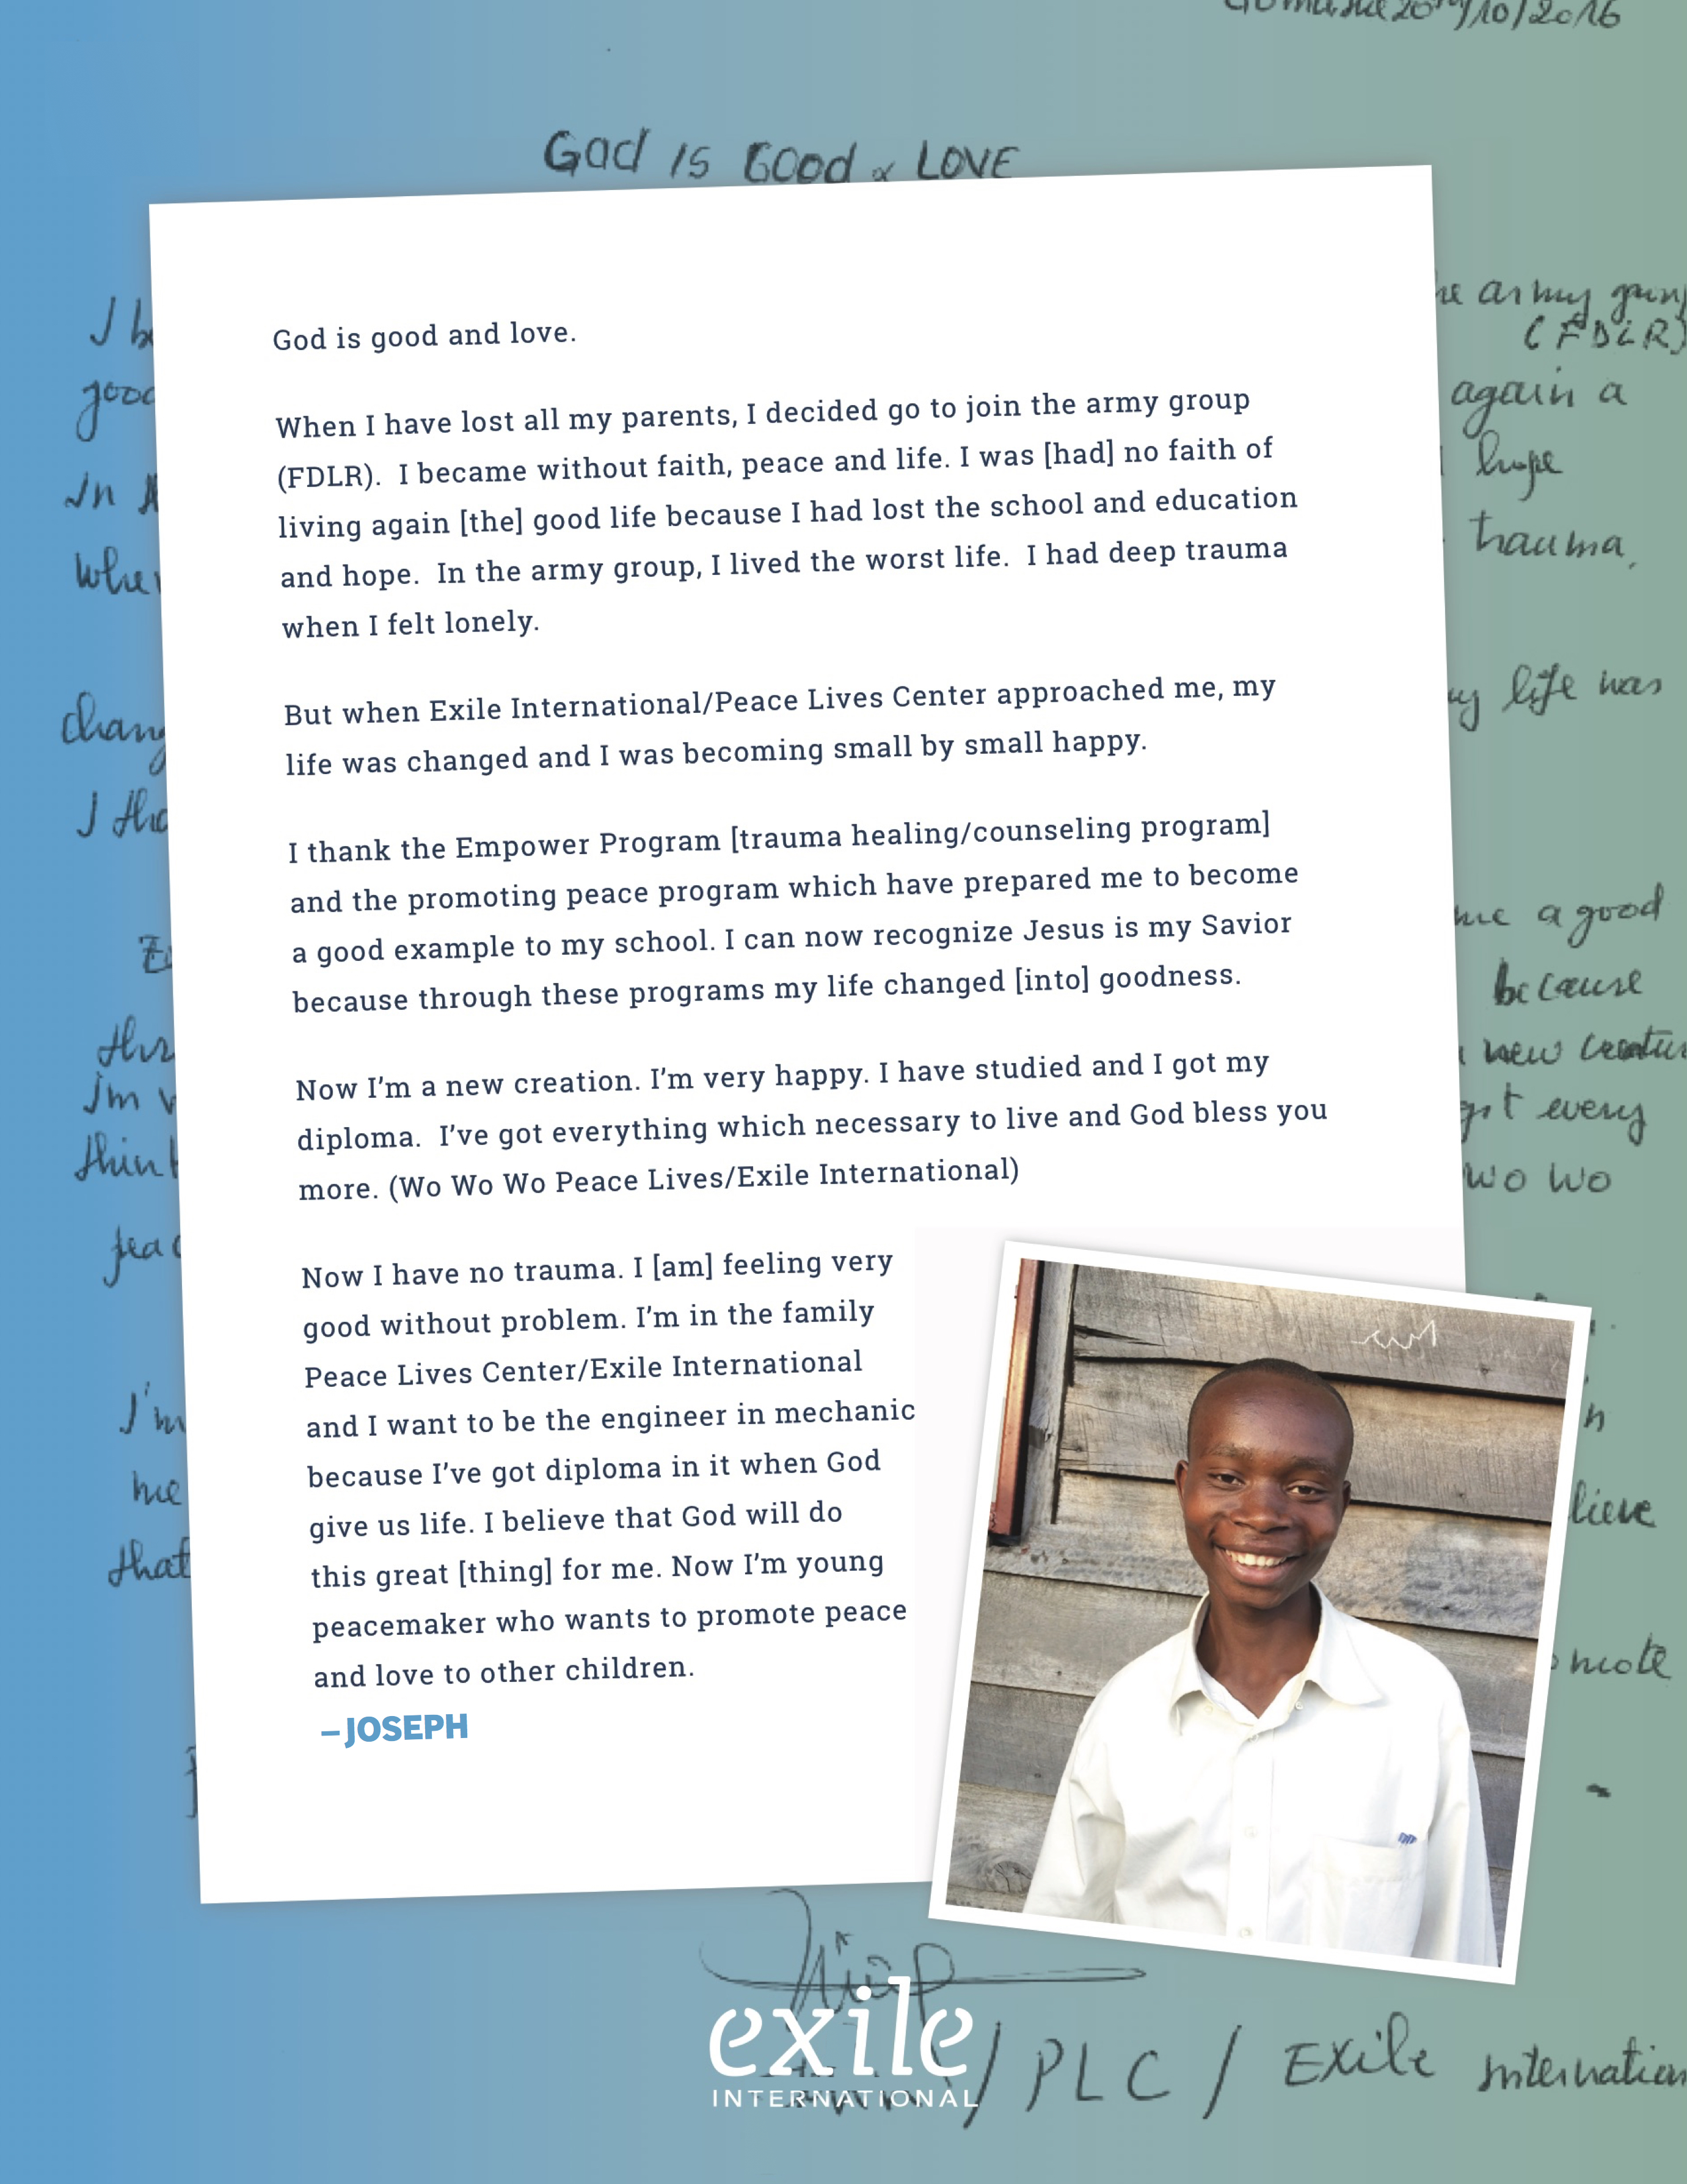 20th/10/2016
God is Good & LOVE
God is good and love.
When I have lost all my parents, I decided go to join the army group
(FDLR). I became without faith, peace and life. I was [had] no faith of
living again [the] good life because I had lost the school and education
and hope. In the army group, I lived the worst life. I had deep trauma
when I felt lonely.
But when Exile International/Peace Lives Center approached me, my
life was changed and I was becoming small by small happy.
I thank the Empower Program [trauma healing/counseling program]
and the promoting peace program which have prepared me to become
a good example to my school. I can now recognize Jesus is my Savior
because through these programs my life changed [into] goodness.
Now I'm a new creation. I'm very happy. I have studied and I got my
diploma. I've got everything which necessary to live and God bless you
more. (Wo Wo Wo Peace Lives/Exile International)
Now I have no trauma. I [am] feeling very
good without problem. I'm in the family
Peace Lives Center/Exile International
and I want to be the engineer in mechanic
because I've got diploma in it when God
give us life. I believe that God will do
this great [thing] for me. Now I'm young
peacemaker who wants to promote peace
and love to other children.
–JOSEPH
army
(FDLR)
again a
hope
trauma,
life was
a good
because
new
every
wo wo
I'm
me
that
exile
INTERNATIONAL
/ PLC / Exile